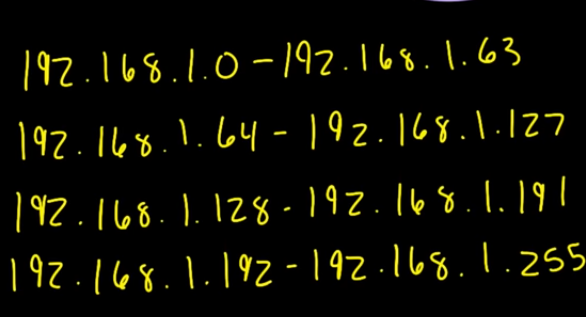 192.168.1.0-192.168.1.63
192.168.1.64-192.168.1.127
192.168.1.128-192.168.1.191
192.168.1.192-192.168.1.255